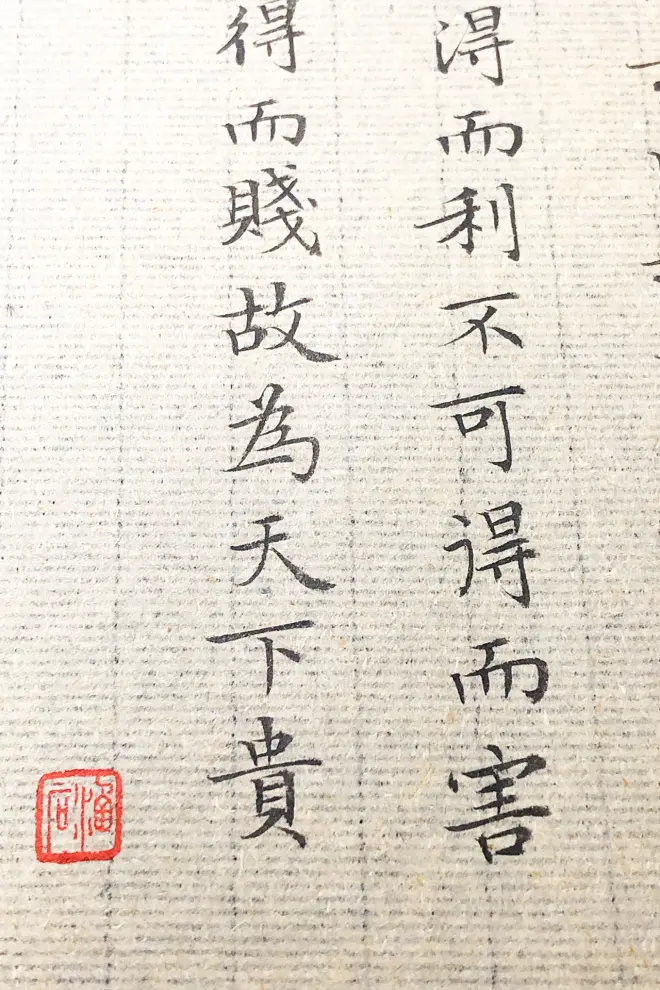 得而利不可得而害
得而賤故為天下貴